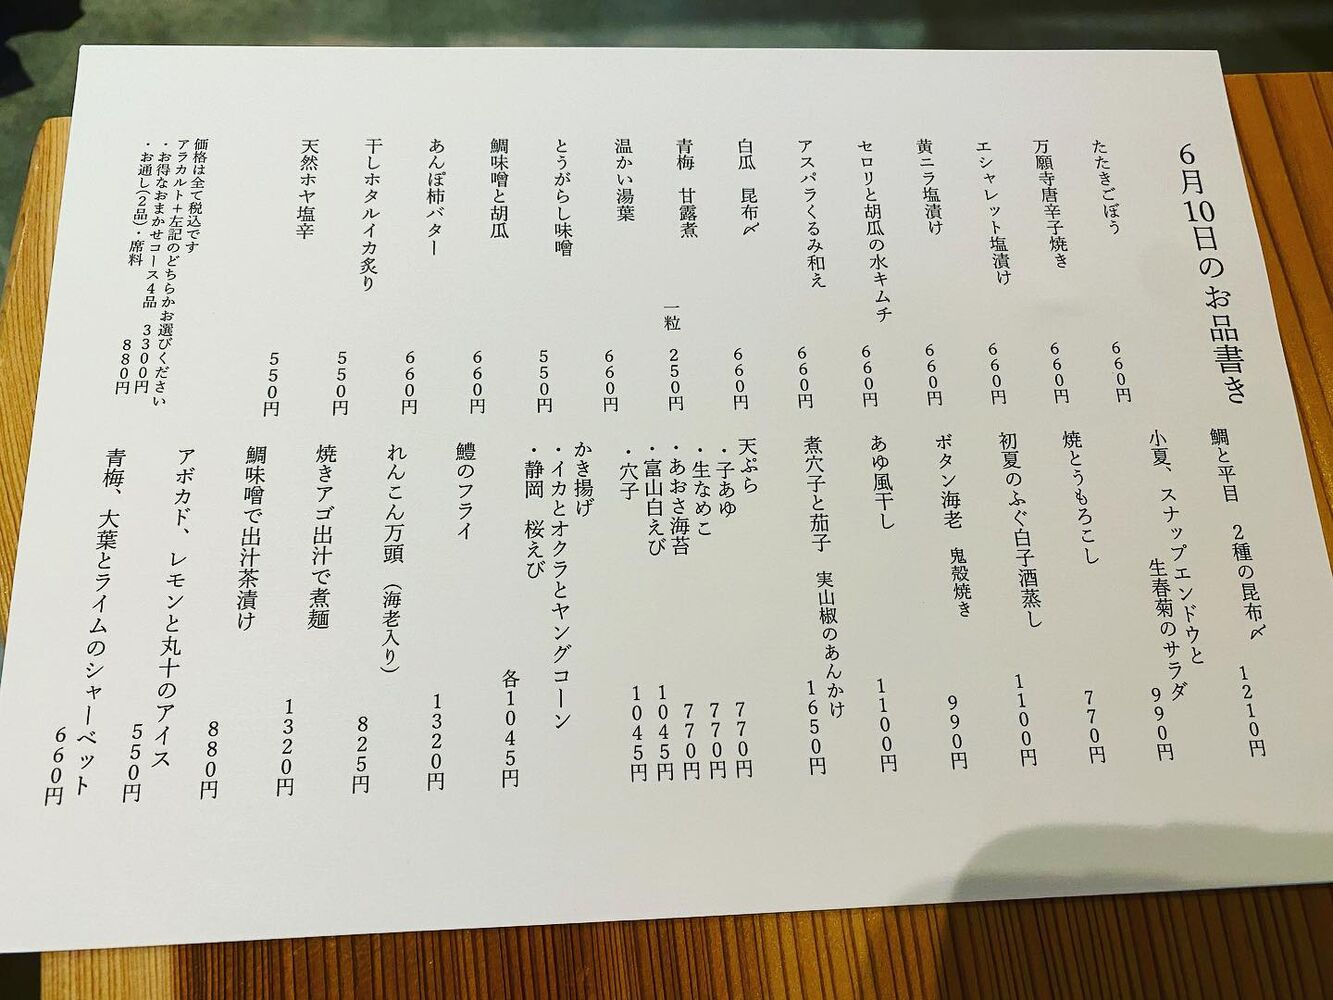 6月10日のお品書き
たたきごぼう　660円
万願寺唐辛子焼き　660円
エシャレット塩漬け　660円
黄ニラ塩漬け　660円
セロリと胡瓜の水キムチ　660円
アスパラくるみ和え　660円
白瓜　昆布〆　660円
青梅　甘露煮　一粒　250円
温かい湯葉　660円
とうがらし味噌　550円
鯛味噌と胡瓜　660円
あんぽ柿バター　660円
干しホタルイカ炙り　550円
天然ホヤ塩辛　550円
価格は全て税込です
アラカルト＋左記のどちらかお選びください
・お得なおまかせコース4品　3300円
・お通し(2品)・席料　880円
鯛と平目　2種の昆布〆　1210円
小夏、スナップエンドウと
生春菊のサラダ　990円
焼とうもろこし　770円
初夏のふぐ白子酒蒸し　1100円
ボタン海老　鬼殻焼き　990円
あゆ風干し　1100円
煮穴子と茄子　実山椒のあんかけ　1650円
天ぷら
・子あゆ　770円
・生なめこ　770円
・あおさ海苔　770円
・富山白えび　1045円
・穴子　1045円
かき揚げ
・イカとオクラとヤングコーン
・静岡　桜えび　各1045円
鱧のフライ　1320円
れんこん万頭　（海老入り）　825円
焼きアゴ出汁で煮麺　1320円
鯛味噌で出汁茶漬け　880円
アボカド、レモンと丸十のアイス　550円
青梅、大葉とライムのシャーベット　660円